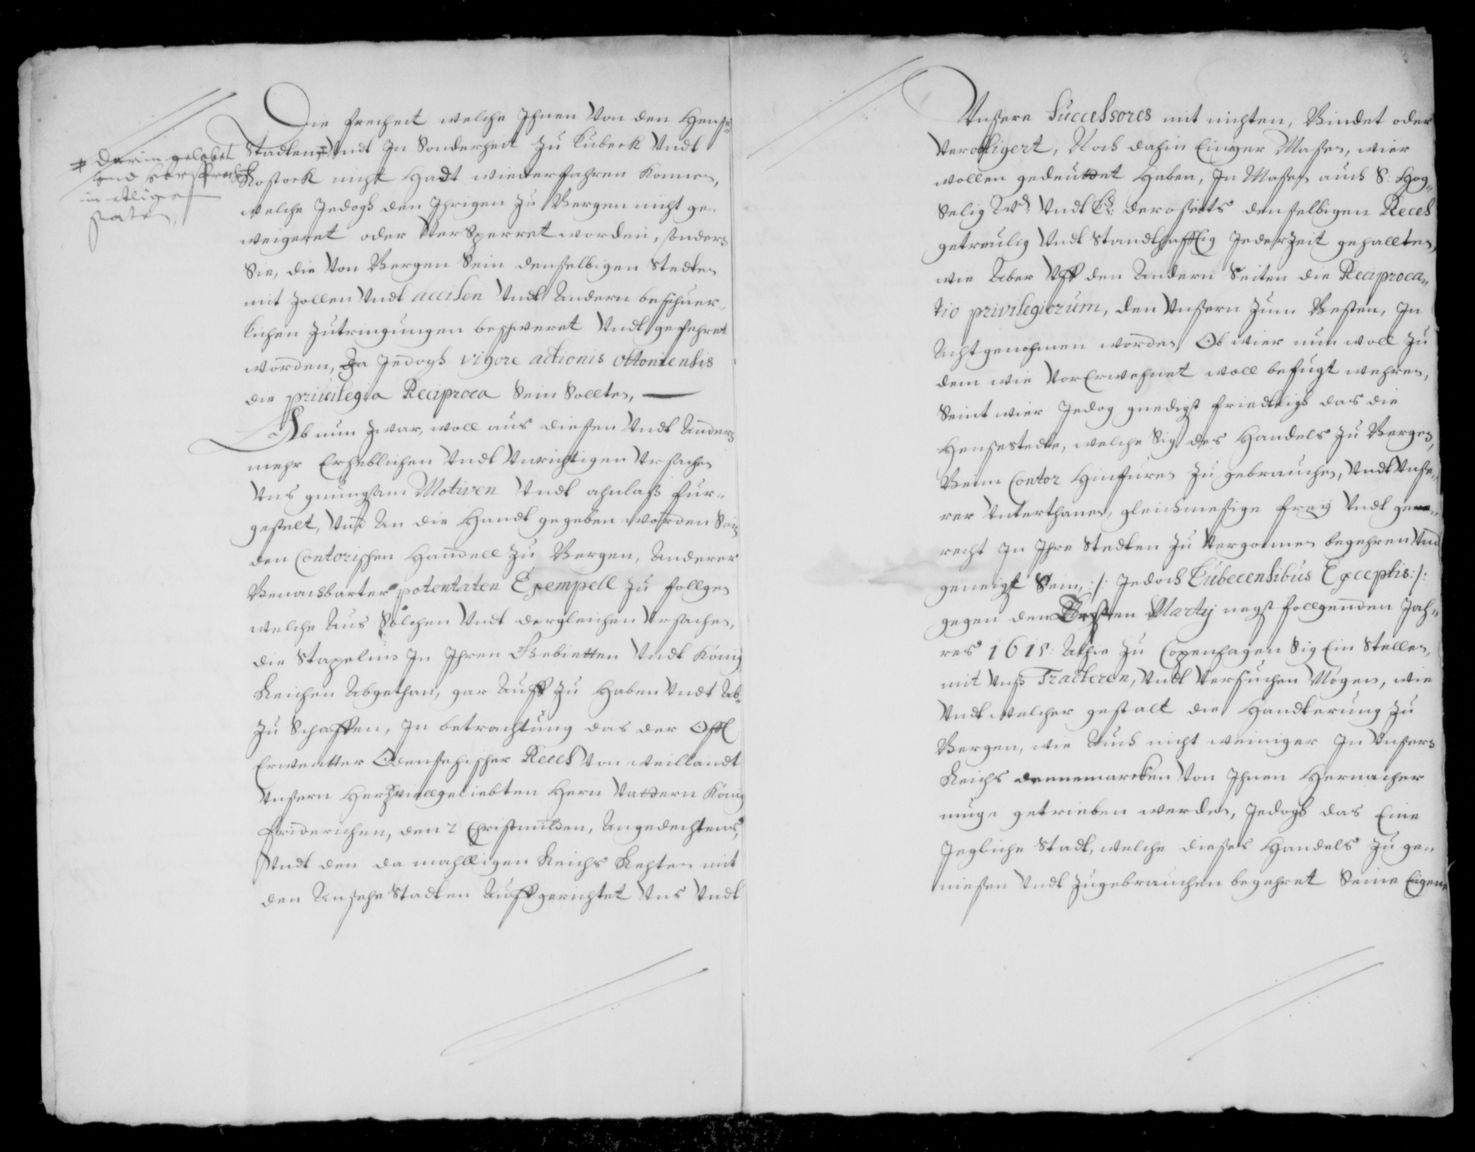 Die freiheit welche Ihnen Von den Hense
Stadten # Vndt In Sonderheit Zu Lübeck Vndt
# darin gelobet
vnd versprochen
in etlige
Rostock nicht Hadt wiederfahren Konnen,
welche Jedogh den Ihrigen Zu Bergen nicht ge-
weigeret oder Versperret worden, sondern
Sie, die Von Bergen Sein denselbigen Stedten
mit Zollen Vndt accisen Vndt Andern beschwer-
lichen Zutringungen beschweret Vndt gefehret
worden, Da Jedogh vigore actionis ottoniensis
die privilegia Reciproca Sein Sollten,
Ob nun Zwar, woll aus diesen Vndt Andern
mehr Erheblichen Vndt Vnrichtigen Vrsachen
Vns gnungsam Motiven Vndt ahnlaß fur-
gestalt, Vnd An die Handt gegeben worden Sein
den Contorischen Handell Zu Bergen, Anderer
Benachbarter potentaten Exempell Zu follgen
welche Aus Solchen Vndt dergleichen Vrsachen,
die Stapelun In Ihren Gebietten Vndt König
Reichen Abgethan, gar Auff Zu Haben Vndt Ab-
Zu Schaffen, In betrachtung das der Offt
Erwentter Odensehischer Recess Von weillandt
Vnsern Herzviellgeliebten Hern Vattern König
Friderichen, den 2 Christmilden, Angedechtens,
Vndt den da mahlligen Reichs Rehten mit
den Ansehe Stadten Auffgerichtet Vns Vndt
Vnsere Successores mit nichten, Bindet oder
Verobligert, Noch dahin Einiger Maßen, wier
wollen gedeutet Haben, In Maßen auch S: Hog-
Selig
Vndt
deroseits denselbigen Recess
getreulig Vndt Standthafftig Jederzeit gehallten,
wie Aber Vff den Andern Seiten die Reciproca-
tio privilegiorum, den Vnsern Zum Besten, In
Acht genohmen worden, Ob wier nun woll Zu
dem wie VorErwehnet woll befugt wehren,
Seint wier Jedog gnedigst friedtigh das die
Hensestedte, welche Sig des Handels Zu Bergen,
Beim Contor Hinfuren Zu gebrauchen, Vndt Vnse-
rer Vnterthanen, gleichmesige frey Vndt ge-
recht In Ihre Stedten Zu Vergonnen begehren Vnd
geneigt Sein, :/: Jedoch Lübecensibus Exceptis :/:
gegen den Ersten Martij negst follgenden Jah-
res 1615: Alhie Zu Copenhagen Sig Ein Stellen,
mit Vnß Tracteren, Vndt Versuchen Mögen, wie
Vndt welcher gestalt die Handterung Zu
Bergen, wie Auch nicht weiniger In Vnsern
Reichs dennemarcken Von Ihnen Hernacher
muge getrieben werden, Jedogh das Eine
Jegliche Stadt, welche dieses Handels Zu ge-
niesen Vndt Zugebrauchen begehret Seine Eigene